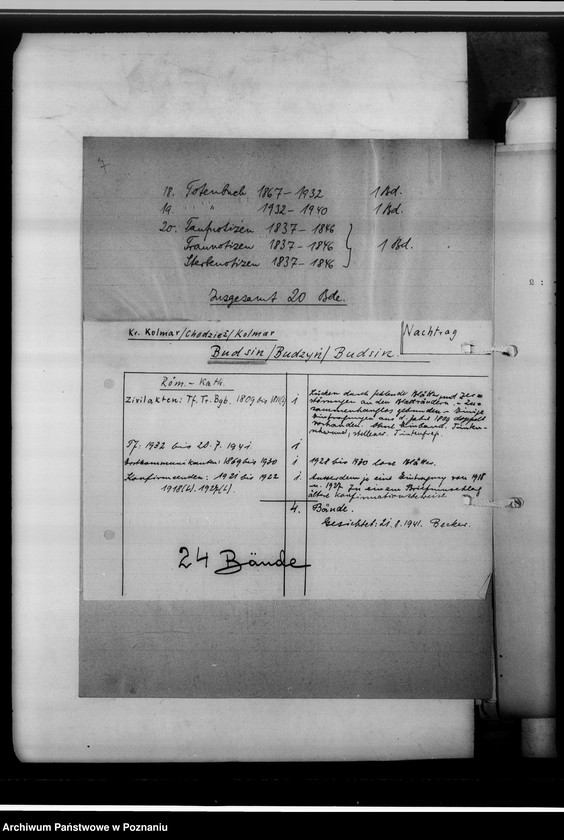 18. Totenbuch 1867-1932 1 Bd.
19. " 1932-1940 1 Bd.
20. Taufnotizen 1837-1846
Traunotizen 1837-1846 1 Bd.
Sterbenotizen 1837-1846
Insgesamt 20 Bde.
Kr. Kolmar/Chodzież/Kolmar
Nachtrag
Budsin/Budzyń/Budsin.
Röm.-Kath.
Zivilakten: Tf. Tr. Bgb. 1809 bis 1 Lücken durch fehlende Blätter und Zer-
störungen an den Blatträndern
zusammenhanglos gebunden - Einige
Eintragungen aus d. Jahre 1809 doppelt
vorhanden. Ohne Einband.
Tf: 1932 bis 20.7.1941 1
Erstkommunikanten: 1869 bis 1930 1 1928 bis 1930 lose Blätter.
Konfirmenden: 1921 bis 1922 1 Ausserdem je eine Eintragung von 1918
1918(L). 1927(L). u. 1927 In einem Briefumschlag
ältere Konfirmationsbeweise
4. Bände.
Gesichtet: 21.8.1941. Becker.
24 Bände
Archiwum Państwowe w Poznaniu